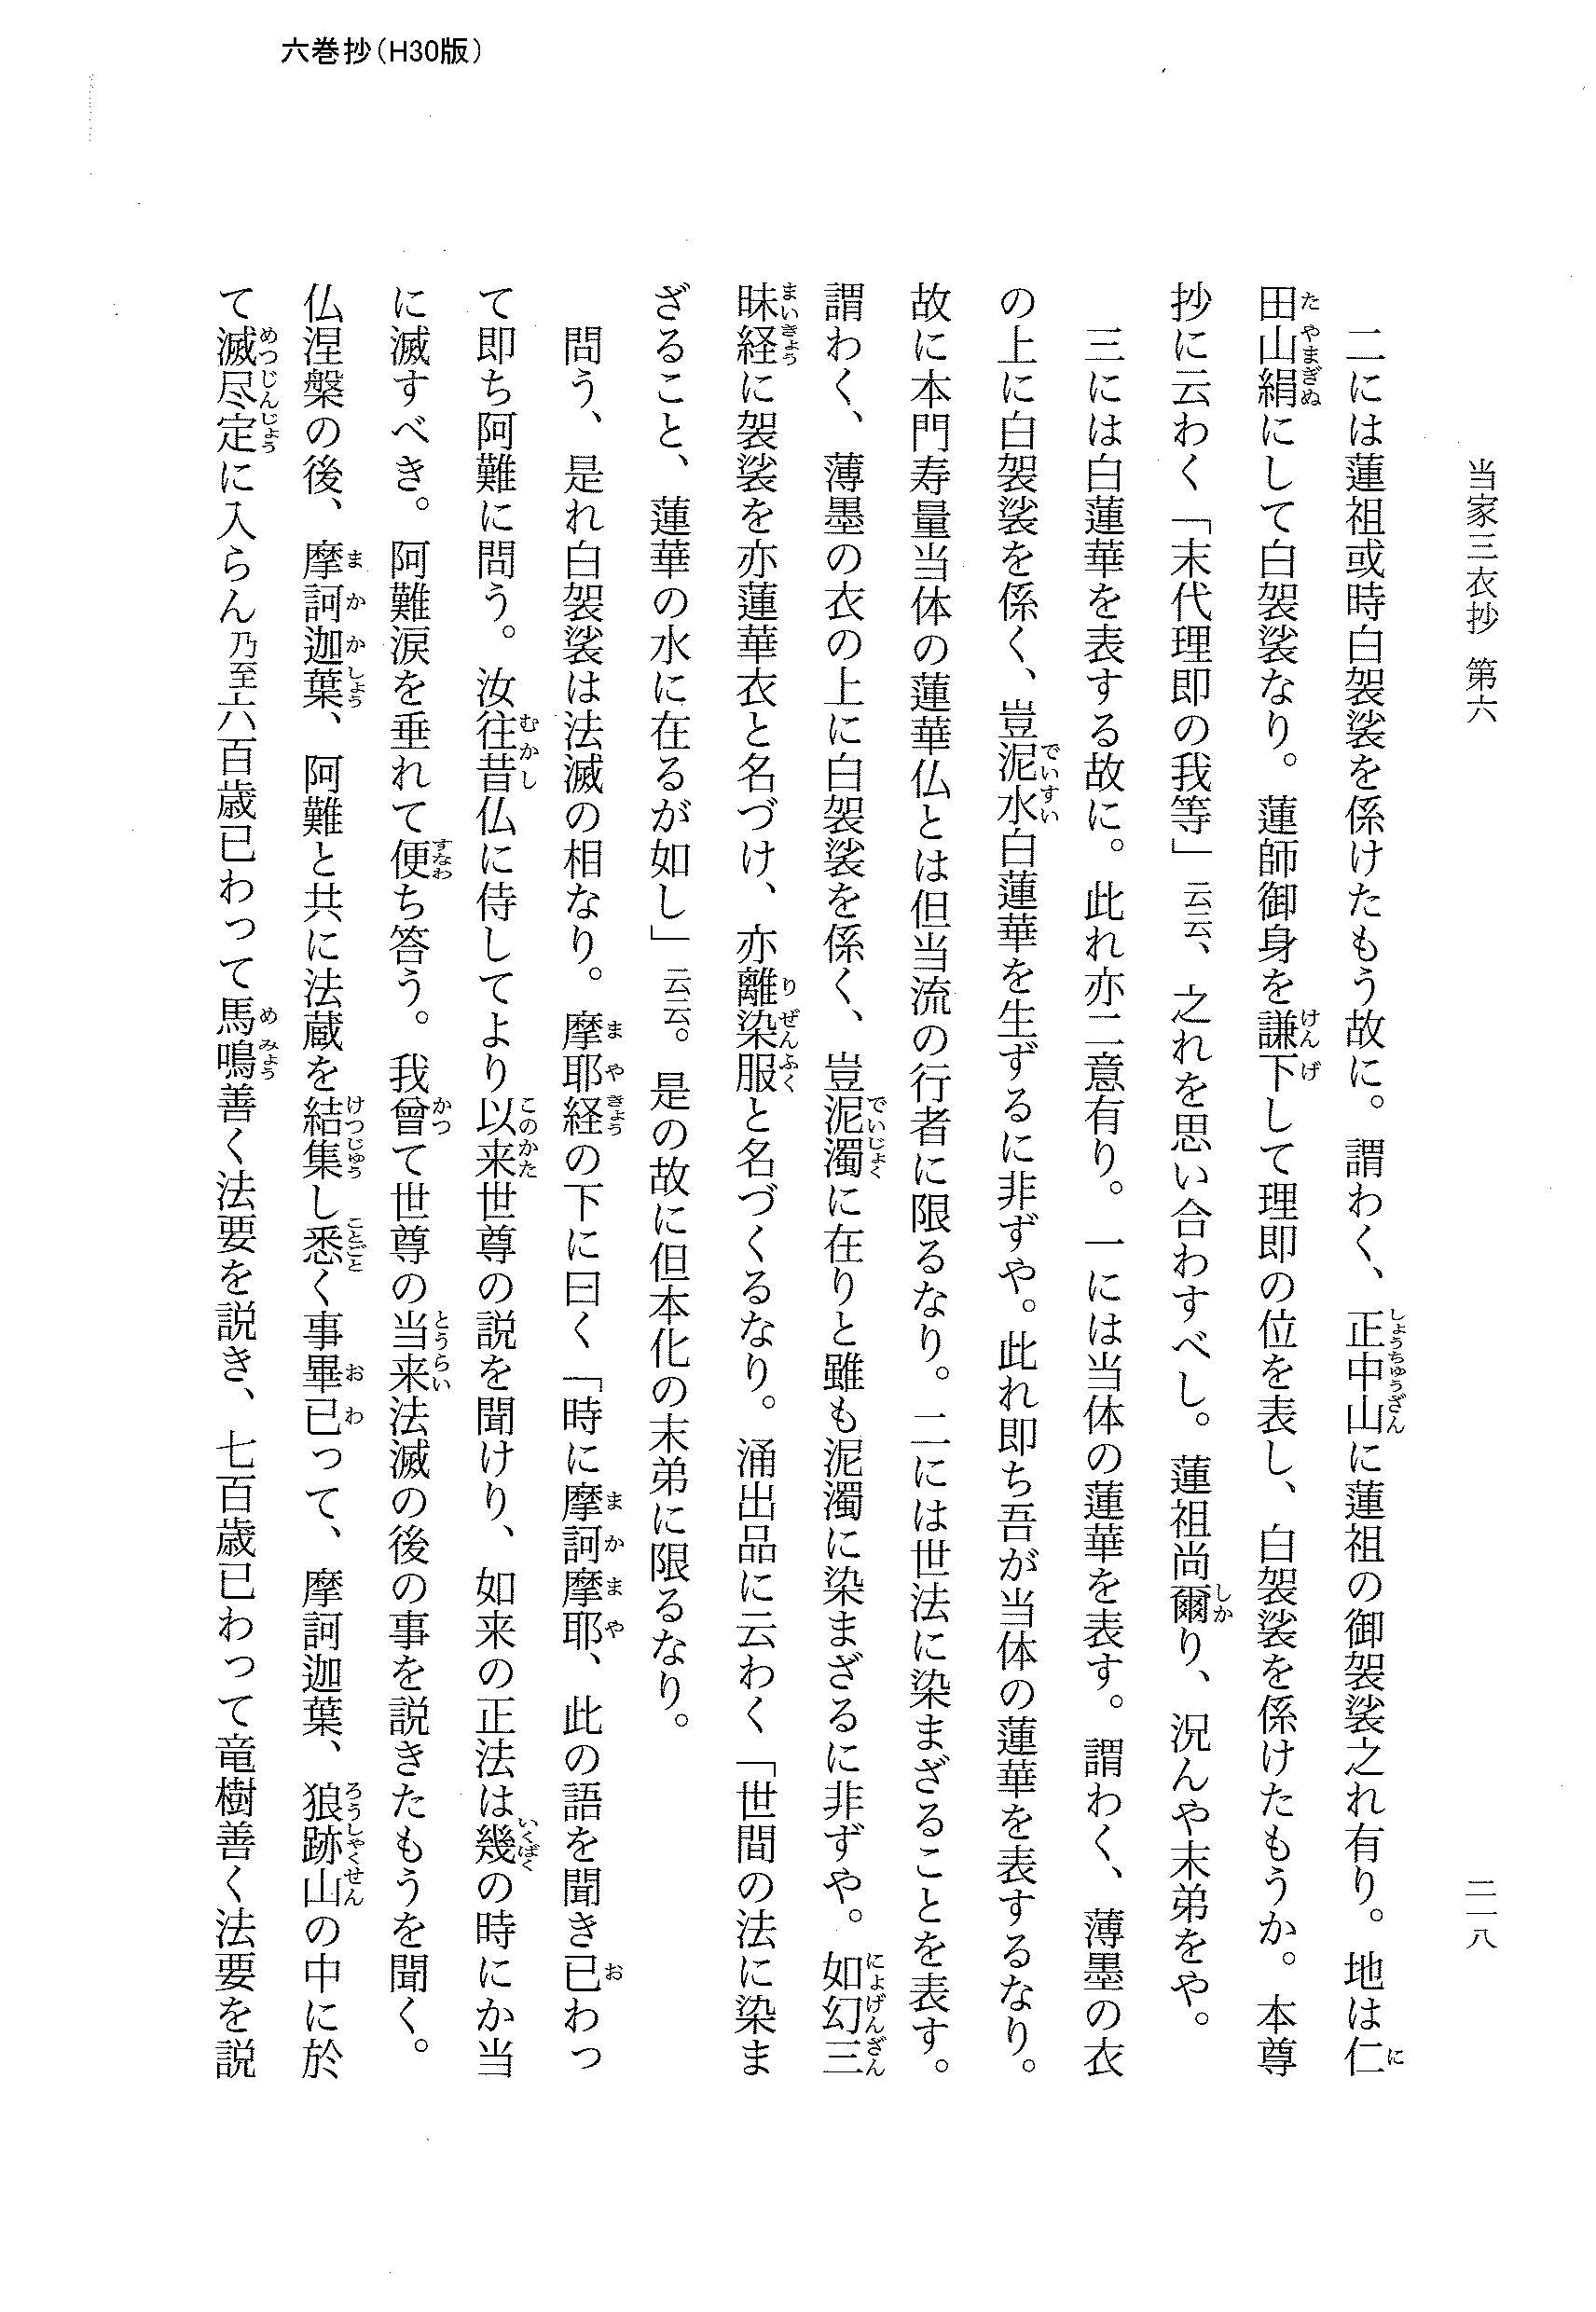 六巻抄（H30版）
当家三衣抄 第六
二一八
二には蓮祖或時白袈裟を係けたもう故に。謂わく、正中山に蓮祖の御袈裟之れ有り。地は仁
田山絹にして白袈裟なり。蓮師御身を謙下して理即の位を表し、白袈裟を係けたもうか。本尊
抄に云わく「末代理即の我等」云云、之れを思い合わすべし。蓮祖尚爾り、況んや末弟をや。
三には白蓮華を表する故に。此れ亦二意有り。一には当体の蓮華を表す。謂わく、薄墨の衣
の上に白袈裟を係く、豈泥水白蓮華を生ずるに非ずや。此れ即ち吾が当体の蓮華を表するなり。
故に本門寿量当体の蓮華仏とは但当流の行者に限るなり。二には世法に染まざることを表す。
謂わく、薄墨の衣の上に白袈裟を係く、豈泥濁に在りと雖も泥濁に染まざるに非ずや。如幻三
昧経に袈裟を亦蓮華衣と名づけ、亦離染服と名づくるなり。涌出品に云わく「世間の法に染ま
ざること、蓮華の水に在るが如し」云云。是の故に但本化の末弟に限るなり。
問う、是れ白袈裟は法滅の相なり。摩耶経の下に曰く「時に摩訶摩耶、此の語を聞き已わっ
て即ち阿難に問う。汝往昔仏に侍してより以来世尊の説を聞けり、如来の正法は幾の時にか当
に滅すべき。阿難涙を垂れて便ち答う。我曾て世尊の当来法滅の後の事を説きたもうを聞く。
仏涅槃の後、摩訶迦葉、阿難と共に法蔵を結集し悉く事畢已って、摩訶迦葉、狼跡山の中に於
て滅尽定に入らん乃至六百歳已わって馬鳴善く法要を説き、七百歳已わって竜樹善く法要を説